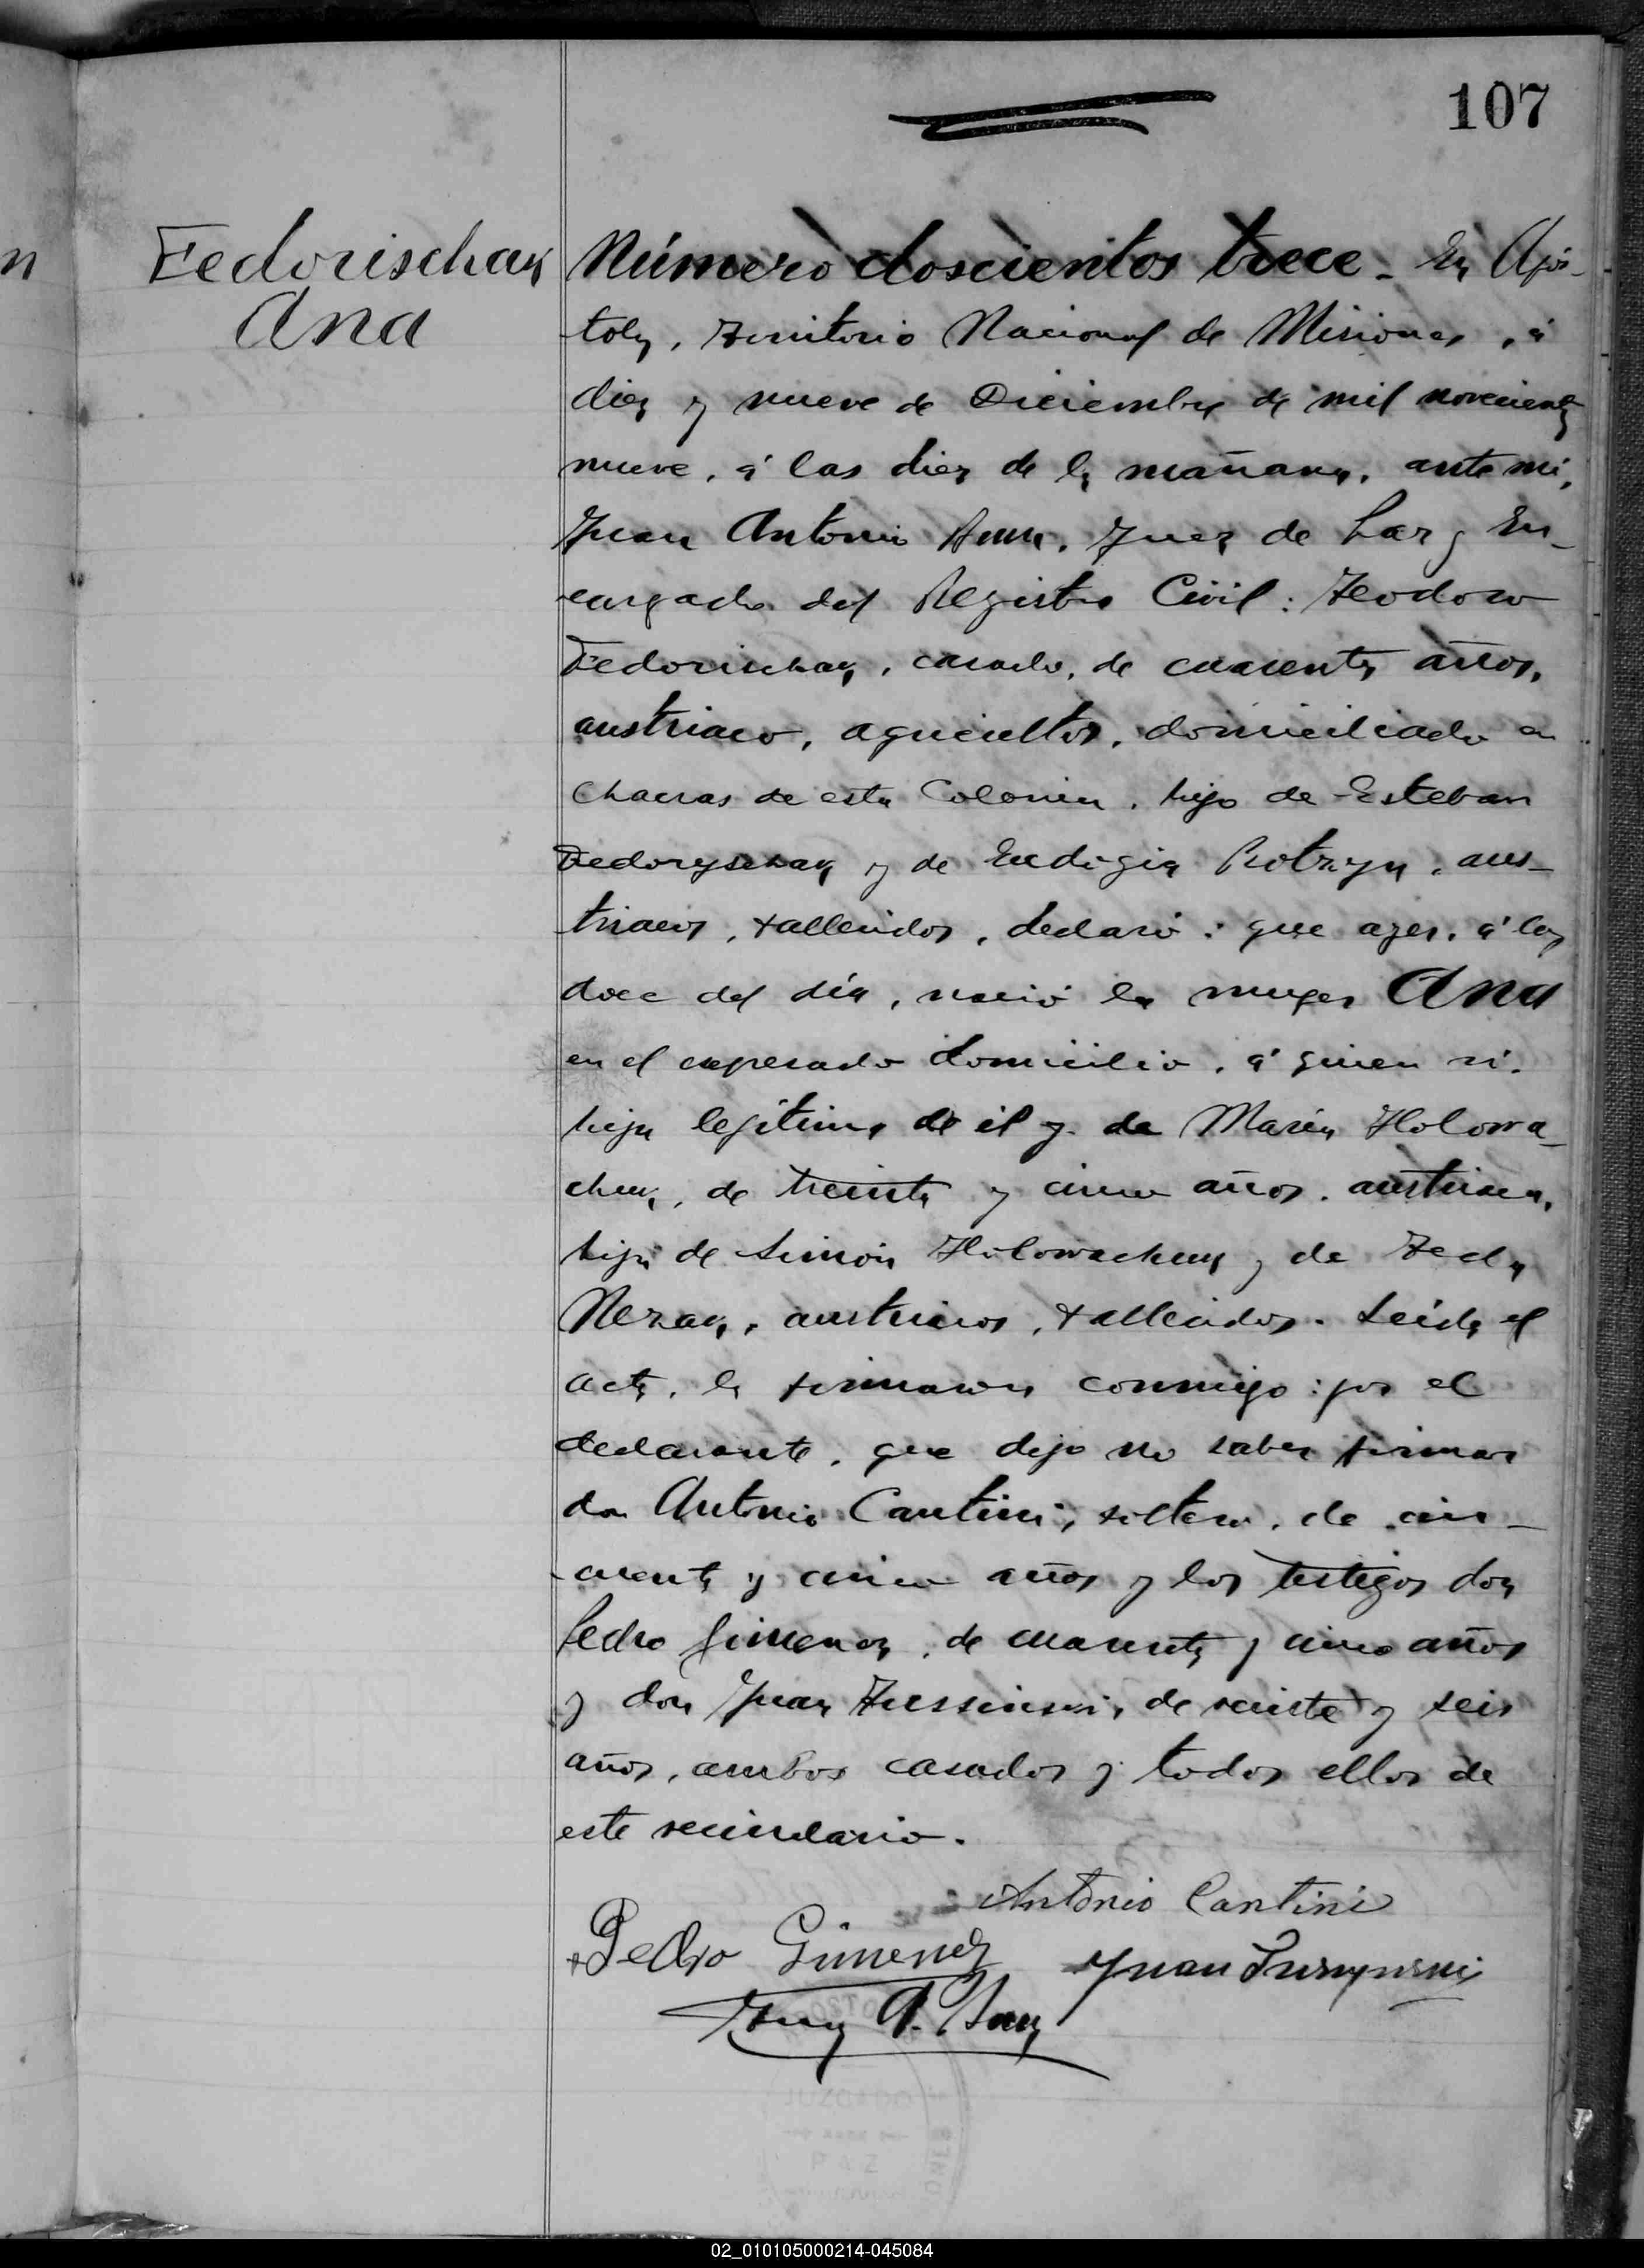 107
Fedorischak
Ana
Número doscientos trece. En Apos-
toles, Territorio Nacional de Misiones, á
diez y nueve de Diciembre de mil novecientos
nueve, á las diez de la mañana, ante mi,
Juan Antonio Juez de Paz y En-
cargado del Registro Civil: Teodoro
Fedorischak, casado, de cuarenta años,
austriaco, agricultor, domiciliado en
chacras de esta Colonia, hijo de Esteban
Fedoryschak y de aus-
triacos, fallecidos, declaró: que ayer, á las
doce del día, nació la muger Ana
en el expresado domicilio, á quien vi.
hija legítima de él y de María Holowa-
chuk, de treinta y cinco años, austriaca,
hija de Simón Holowachuk y de Tecla
austriacos, fallecidos. Leída el
acta, la firmaron conmigo: por el
declarante, que dijo no saber firmar
don Antonio Cantini, soltero, de cin-
cuenta y cinco años y los testigos don
Pedro Gimenez, de cuarenta y cinco años
y don Juan de veinte y seis
años, ambos casados y todos ellos de
este vecindario.
Antonio Cantini
Pedro Gimenez
Juan
Juan A.
02_010105000214-045084